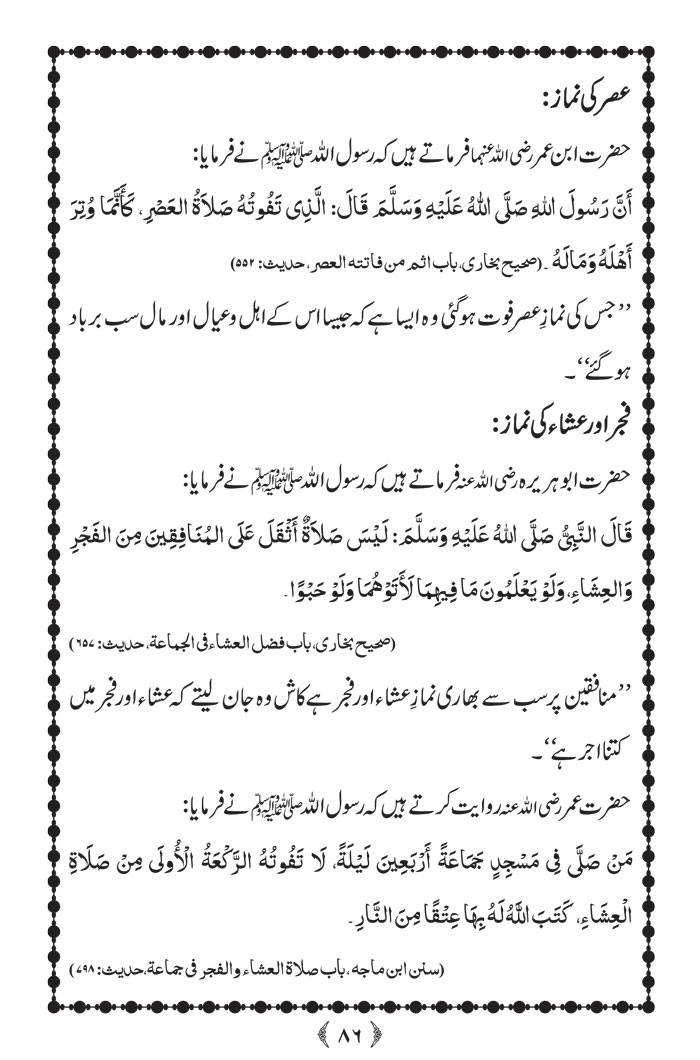 عصر کی نماز:
حضرت ابن عمر رضی اللہ عنہما فرماتے ہیں کہ رسول اللہ ﷺ نے فرمایا:
أَنَّ رَسُولَ اللهِ صَلَّى اللهُ عَلَيْهِ وَسَلَّمَ قَالَ: الَّذِى تَفُوتُهُ صَلاَةُ العَصْرِ، كَأَنَّمَا وُتِرَ
أَهْلَهُ وَمَالَهُ ۔ (صحیح بخاری، باب اثم من فاتته العصر، حدیث: ۵۵۲)
’’جس کی نمازِ عصر فوت ہوگئی وہ ایسا ہے کہ جیسا اس کے اہل و عیال اور مال سب برباد
ہو گئے‘‘۔
فجر اور عشاء کی نماز:
حضرت ابو ہریرہ رضی اللہ عنہ فرماتے ہیں کہ رسول اللہ ﷺ نے فرمایا:
قَالَ النَّبِيُّ صَلَّى اللهُ عَلَيْهِ وَسَلَّمَ: لَيْسَ صَلاَةٌ أَثْقَلَ عَلَى المُنَافِقِينَ مِنَ الفَجْرِ
وَالعِشَاءِ، وَلَوْ يَعْلَمُونَ مَا فِيهِمَا لَأَتَوْهُمَا وَلَوْ حَبْوًا۔
(صحیح بخاری، باب فضل العشاء فی الجماعة، حدیث: ۶۵۷)
’’منافقین پر سب سے بھاری نمازِ عشاء اور فجر ہے کاش وہ جان لیتے کہ عشاء اور فجر میں
کتنا اجر ہے‘‘۔
حضرت عمر رضی اللہ عنہ روایت کرتے ہیں کہ رسول اللہ ﷺ نے فرمایا:
مَنْ صَلَّى فِي مَسْجِدٍ جَمَاعَةً أَرْبَعِينَ لَيْلَةً، لَا تَفُوتُهُ الرَّكْعَةُ الْأُولَى مِنْ صَلَاةِ
الْعِشَاءِ، كَتَبَ اللَّهُ لَهُ بِهَا عِتْقًا مِنَ النَّارِ۔
(سنن ابن ماجه، باب صلاة العشاء والفجر فی جماعة، حدیث: ۷۹۸)
﴿۸۶﴾